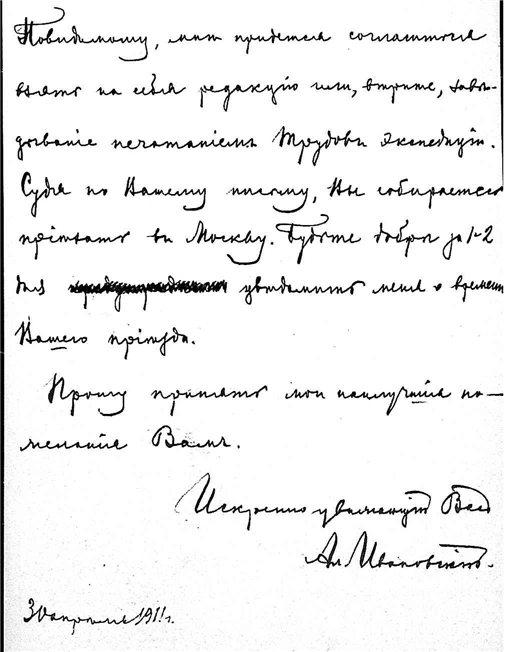 Повидимому, мнѣ придется согласиться
взять на себя редакцію или, вѣрнѣе, завѣ-
дываніе печатаніемъ Трудовъ Экспедиціи.
Судя по Вашему письму, Вы собираетесь
пріѣхать въ Москву. Будьте добры за 1-2
дня увѣдомить меня о времени
Вашего пріѣзда.
Прошу принять мои наилучшія по-
желанія Вамъ.
Искренно уважающій Васъ
Ал. Ивановскій.
30 апрѣля 1911 г.